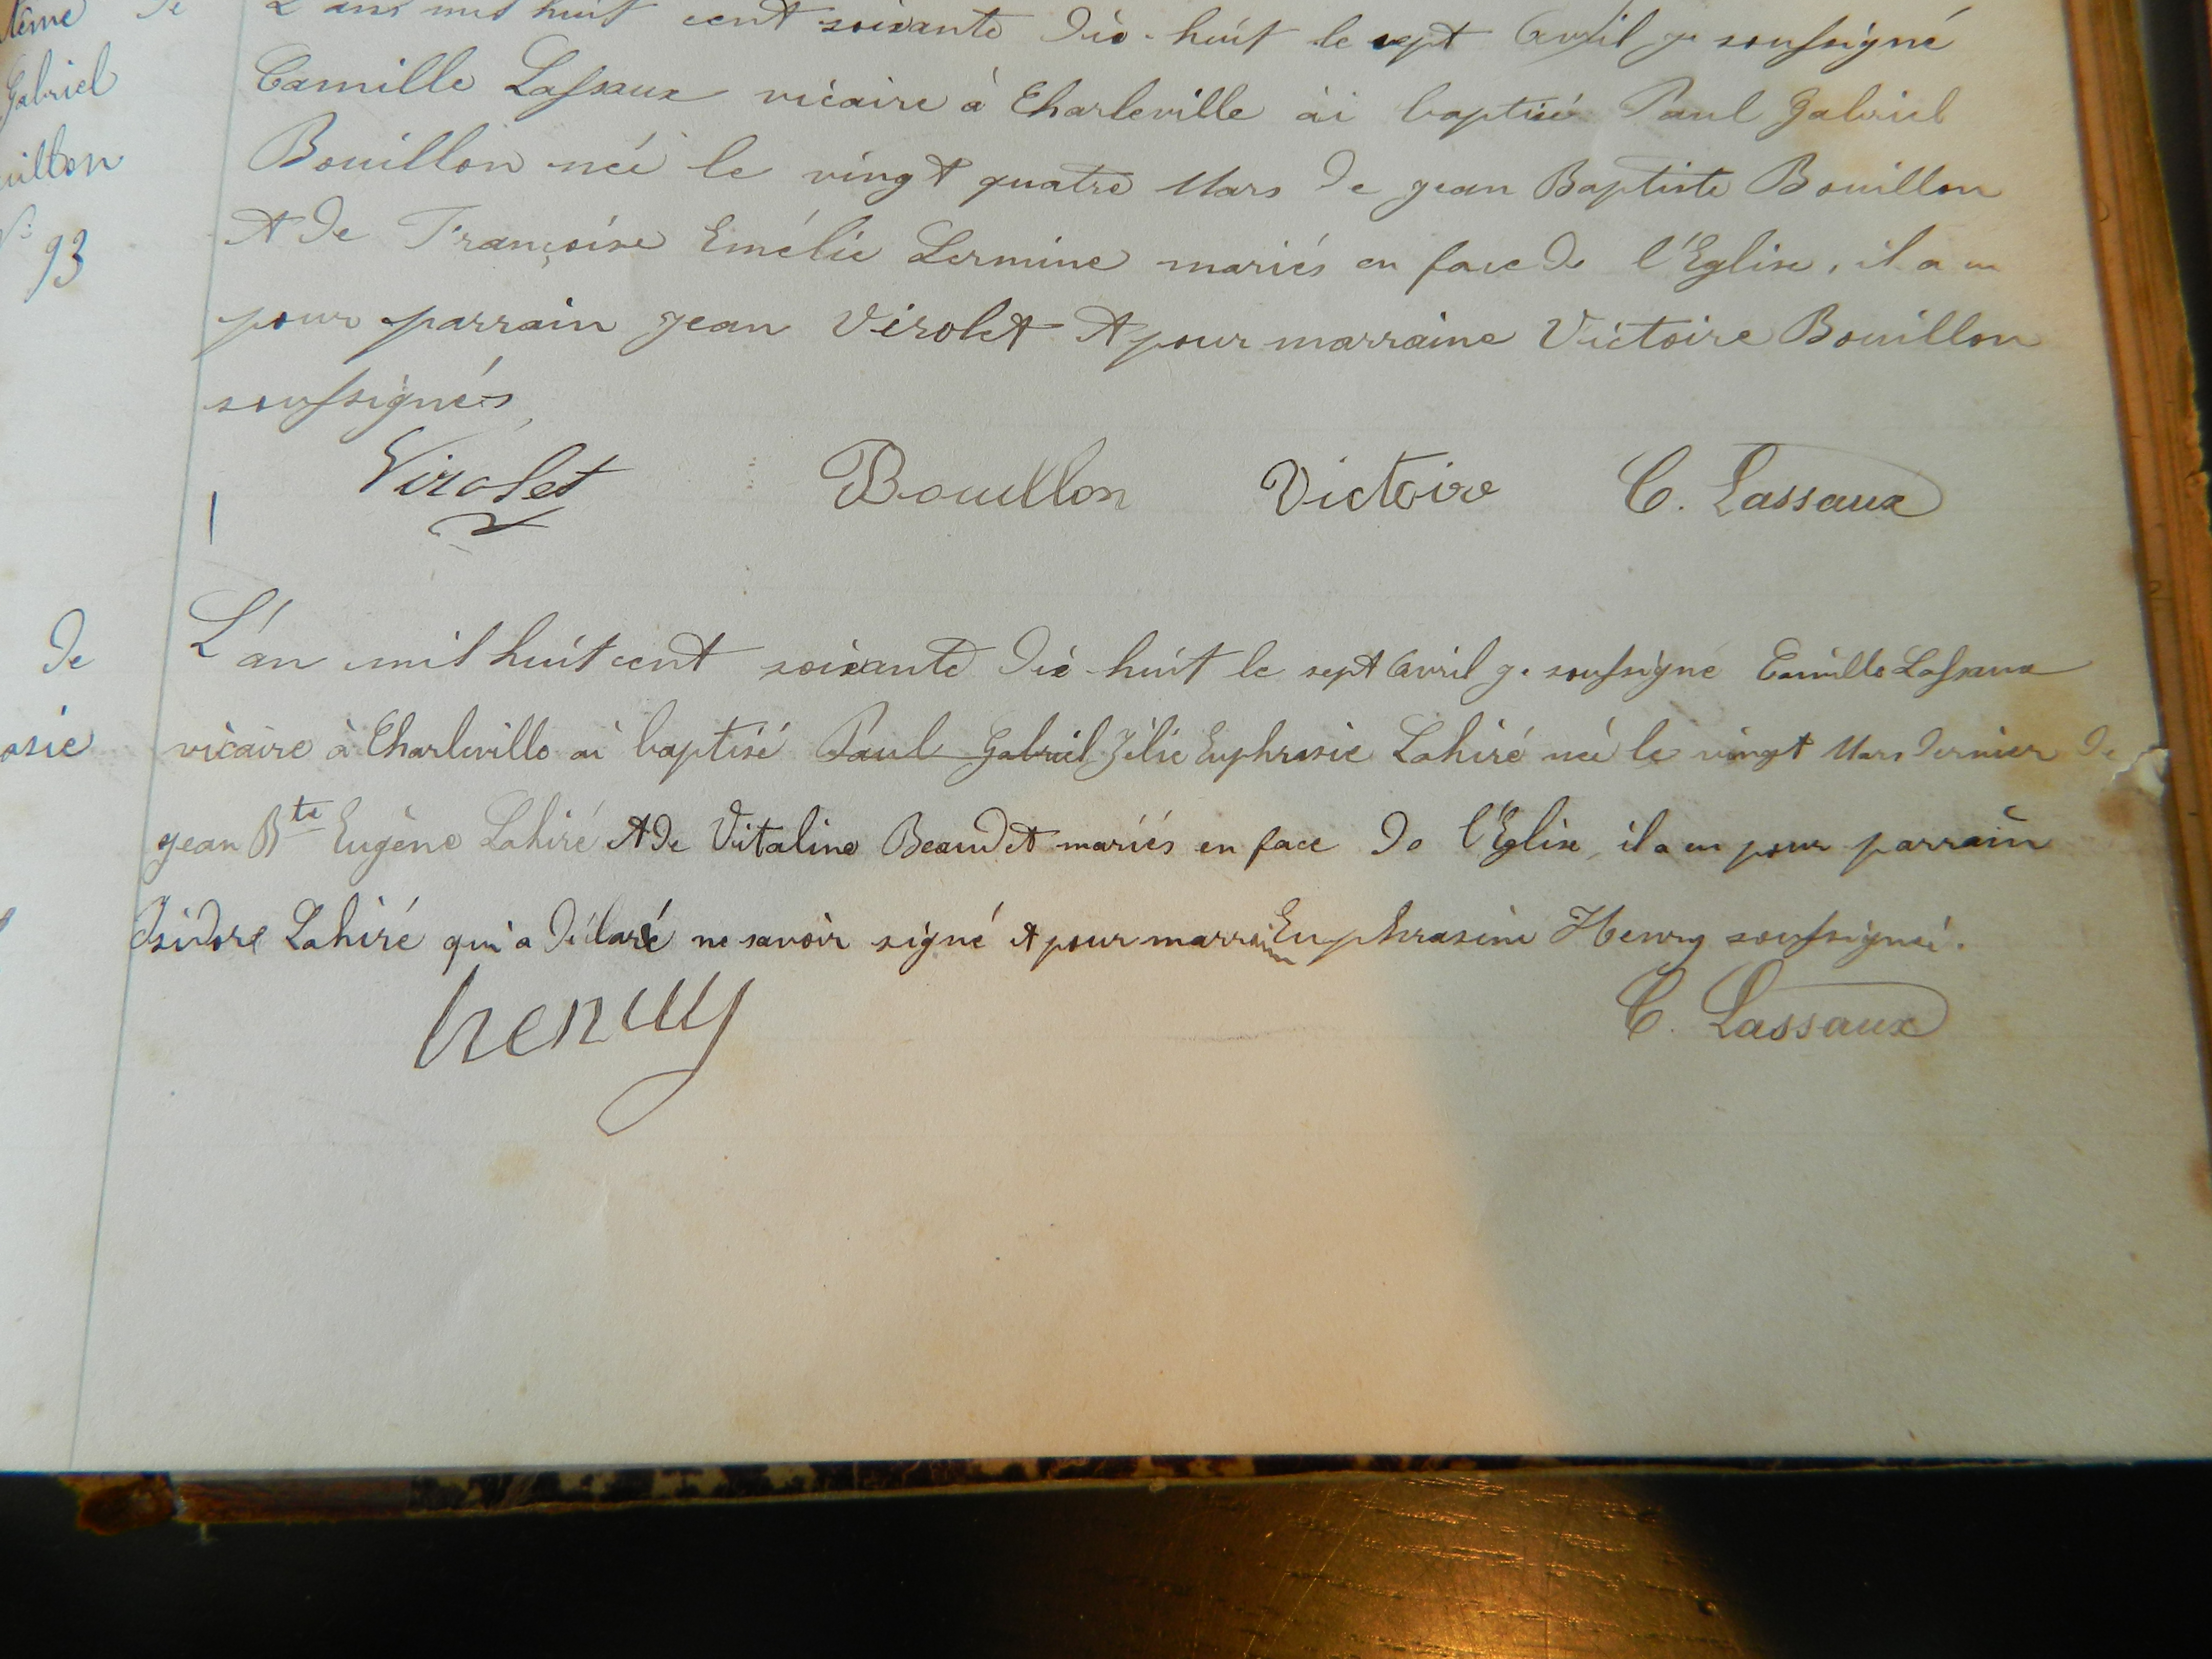 L'ans mil huit cent soixante dix-huit le sept Avril je soussigné
Gabriel
Camille Lassaux vicaire à Charleville ai baptisé Paul Gabriel
Bouillon née le vingt quatre Mars de jean Baptiste Bouillon
93
et de Françoise Emélie Lermine mariés en face de l'Eglise, il a eu
pour parrain jean Virolet et pour marraine Victoire Bouillon
soussignés
Virolet Bouillon Victoire C. Lassaux
de
L'an mil huit cent soixante dix-huit le sept Avril je soussigné Camille Lassaux
asie
vicaire à Charleville ai baptisé Paul Gabriel Zélie Euphrasie Lahiré née le vingt Mars dernier de
jean Bte Eugène Lahiré et de Vitaline Beaudet mariés en face de l'Eglise, il a eu pour parrain
Isidore Lahiré qui a déclaré ne savoir signé et pour marraine Euphrasine Henry soussignée.
henry C. Lassaux